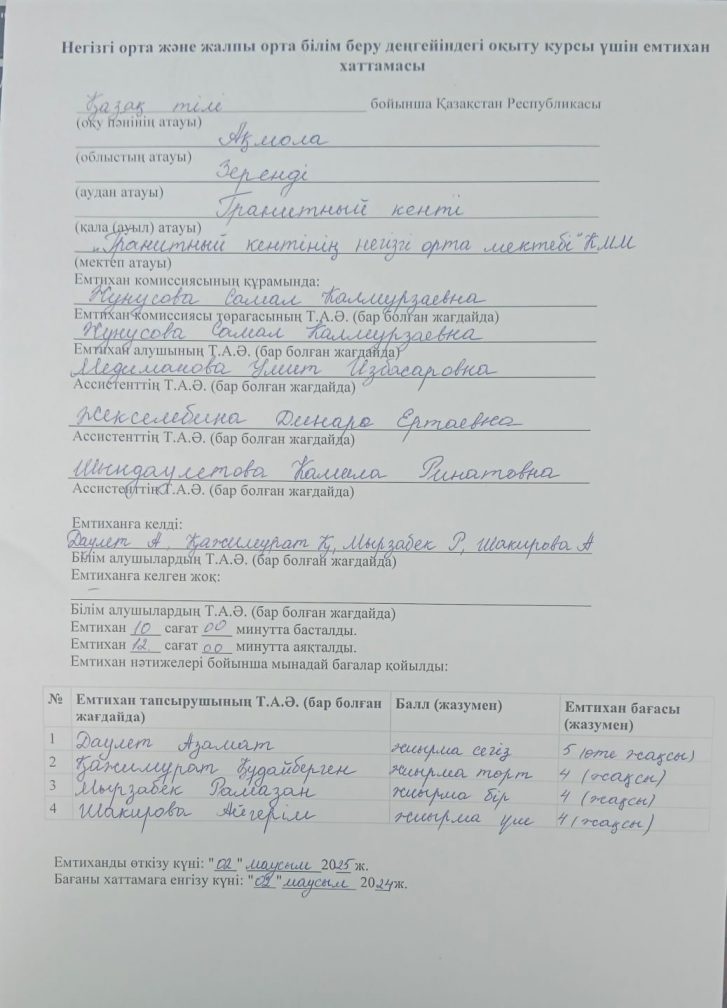 Негізгі орта және жалпы орта білім беру деңгейіндегі оқыту курсы үшін емтихан
хаттамасы
Қазақ тілі бойынша Қазақстан Республикасы
(оқу пәнінің атауы)
Ақмола
(облыстың атауы)
Зеренді
(аудан атауы)
Гранитный кенті
(қала (ауыл) атауы)
"Гранитный кентінің негізгі орта мектебі" КММ
(мектеп атауы)
Емтихан комиссиясының құрамында:
Жунусова Самал Калмурзаевна
Емтихан комиссиясы төрағасының Т.А.Ә. (бар болған жағдайда)
Жунусова Самал Калмурзаевна
Емтихан алушының Т.А.Ә. (бар болған жағдайда)
Медиманова Умит Избасаровна
Ассистенттің Т.А.Ә. (бар болған жағдайда)
Жекселебина Динара Ертаевна
Ассистенттің Т.А.Ә. (бар болған жағдайда)
Шындаулетова Камила Ринатовна
Ассистенттің Т.А.Ә. (бар болған жағдайда)
Емтиханға келді:
Даулет А, Қажимурат Қ, Мырзабек Р, Шакирова А
Білім алушылардың Т.А.Ә. (бар болған жағдайда)
Емтиханға келген жоқ:
–
Білім алушылардың Т.А.Ә. (бар болған жағдайда)
Емтихан 10 сағат 00 минутта басталды.
Емтихан 12 сағат 00 минутта аяқталды.
Емтихан нәтижелері бойынша мынадай бағалар қойылды:
№ Емтихан тапсырушының Т.А.Ә. (бар болған жағдайда) Балл (жазумен) Емтихан бағасы (жазумен)
1 Даулет Азамат жиырма сегіз 5 (өте жақсы)
2 Қажимурат Құдайберген жиырма төрт 4 (жақсы)
3 Мырзабек Рамазан жиырма бір 4 (жақсы)
4 Шакирова Айгерім жиырма үш 4 (жақсы)
Емтиханды өткізу күні: "02" маусым 2025 ж.
Бағаны хаттамаға енгізу күні: "02" маусым 2024ж.